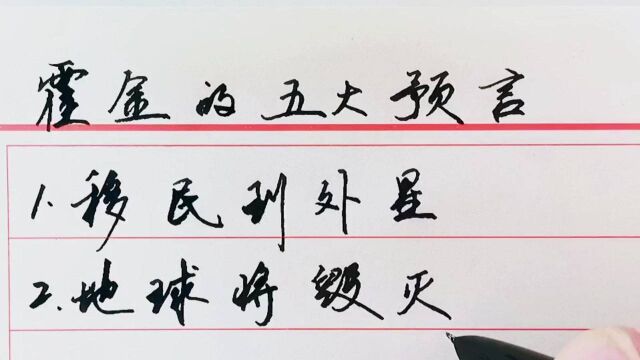 霍金的五大预言
1.移民到外星
2.地球将毁灭